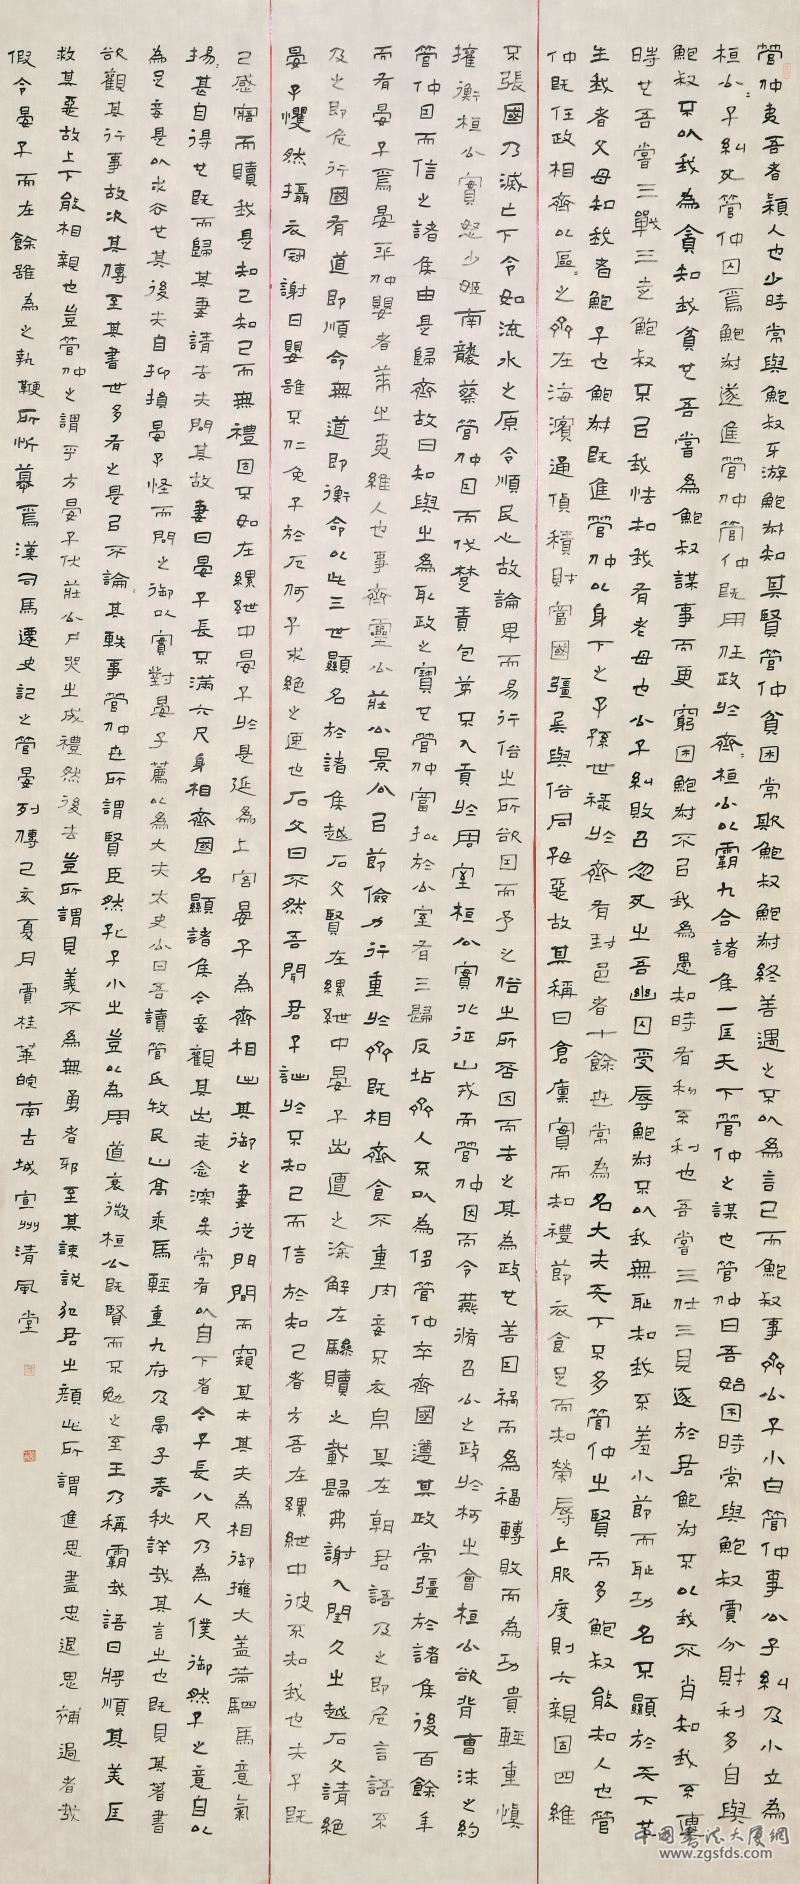 管仲夷吾者穎人也少時常與鮑叔牙游鮑叔知其賢管仲貧困常欺鮑叔鮑叔終善遇之不以為言已而鮑叔事齊公子小白管仲事公子糾及小立為
桓公公子糾死管仲囚焉鮑叔遂進管仲管仲既用任政於齊齊桓公以霸九合諸侯一匡天下管仲之謀也管仲曰吾始困時常與鮑叔賈分財利多自與
鮑叔不以我為貪知我貧也吾嘗為鮑叔謀事而更窮困鮑叔不以我為愚知時有利不利也吾嘗三仕三見逐於君鮑叔不以我不肖知我不遭
時也吾嘗三戰三走鮑叔不以我怯知我有老母也公子糾敗召忽死之吾幽囚受辱鮑叔不以我無恥知我不羞小節而恥功名不顯於天下華
生我者父母知我者鮑子也鮑叔既進管仲以身下之子孫世祿於齊有封邑者十餘世常為名大夫天下不多管仲之賢而多鮑叔能知人也管
仲既任政相齊以區區之齊在海濱通貨積財富國彊兵與俗同好惡故其稱曰倉廩實而知禮節衣食足而知榮辱上服度則六親固四維
不張國乃滅亡下令如流水之原令順民心故論卑而易行俗之所欲因而予之俗之所否因而去之其為政也善因禍而為福轉敗而為功貴輕重慎
權衡桓公實怒少姬南襲蔡管仲因而伐楚責包茅不入貢於周室桓公實北征山戎而管仲因而令燕脩召公之政於柯之會桓公欲背曹沬之約
管仲因而信之諸侯由是歸齊故曰知與之為取政之寶也管仲富擬於公室有三歸反坫齊人不以為侈管仲卒齊國遵其政常彊於諸侯後百餘年
而有晏子焉晏平仲嬰者萊之夷維人也事齊靈公莊公景公以節儉力行重於齊既相齊食不重肉妾不衣帛其在朝君語及之即危言語不
及之即危行國有道即順命無道即衡命以此三世顯名於諸侯越石父賢在縲紲中晏子出遭之涂解左驂贖之載歸弗謝入閨久之越石父請絕
晏子懼然攝衣冠謝曰嬰雖不仁免子於厄何子求絕之速也石父曰不然吾聞君子詘於不知己而信於知己者方吾在縲紲中彼不知我也夫子既
已感寤而贖我是知己知己而無禮固不如在縲紲中晏子於是延為上客晏子為齊相出其御之妻從門間而窺其夫其夫為相御擁大蓋策駟馬意氣
揚揚甚自得也既而歸其妻請去夫問其故妻曰晏子長不滿六尺身相齊國名顯諸侯今妾觀其出志念深矣常有以自下者今子長八尺乃為人僕御然子之意自以
為足妾是以求去也其後夫自抑損晏子怪而問之御以實對晏子薦以為大夫太史公曰吾讀管氏牧民山高乘馬輕重九府及晏子春秋詳哉其言之也既見其著書
欲觀其行事故次其傳至其書世多有之是以不論論其軼事管仲世所謂賢臣然孔子小之豈以為周道衰微桓公既賢而不勉之至王乃稱霸哉語曰將順其美匡
救其惡故上下能相親也豈管仲之謂乎方晏子伏莊公尸哭之成禮然後去豈所謂見義不為無勇者邪至其諫說犯君之顏此所謂進思盡忠退思補過者哉
假令晏子而在餘雖為之執鞭所忻慕焉漢司馬遷史記之管晏列傳己亥夏月賈桂華皖南古城宣州清風堂
中國書法大廈網
www.zgsfds.com